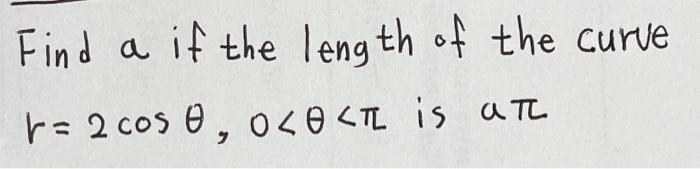 Find a if the length of the curve
r = 2 cos θ, 0<θ<π is aπ